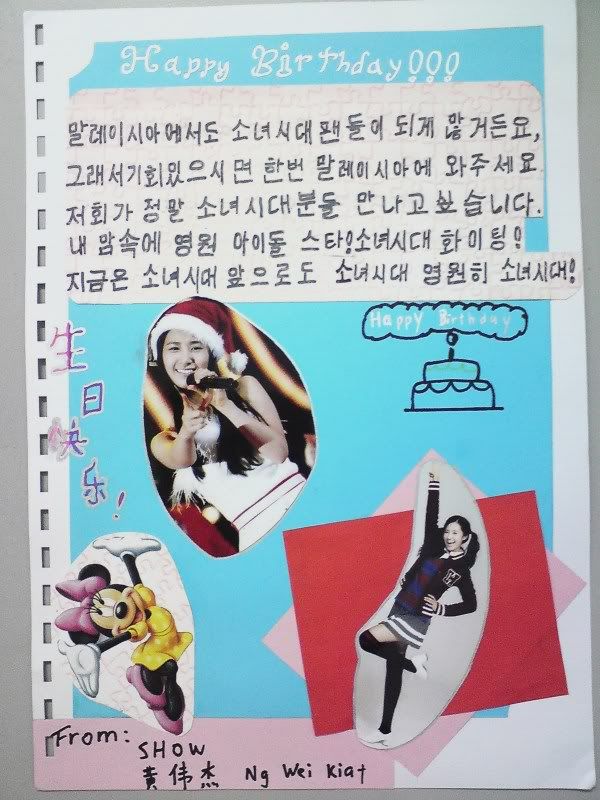 Happy Birthday!!!
말레이시아에서도 소녀시대팬들이 되게 많거든요,
그래서기회있으시면 한번 말레이시아에 와주세요
저희가 정말 소녀시대분들 만나고싶습니다.
내 맘속에 영원 아이돌 스타!소녀시대 화이팅!
지금은 소녀시대 앞으로도 소녀시대 영원히 소녀시대!
Happy Birthday
生日快乐!
From:
SHOW
黄伟杰 Ng Wei Kiat